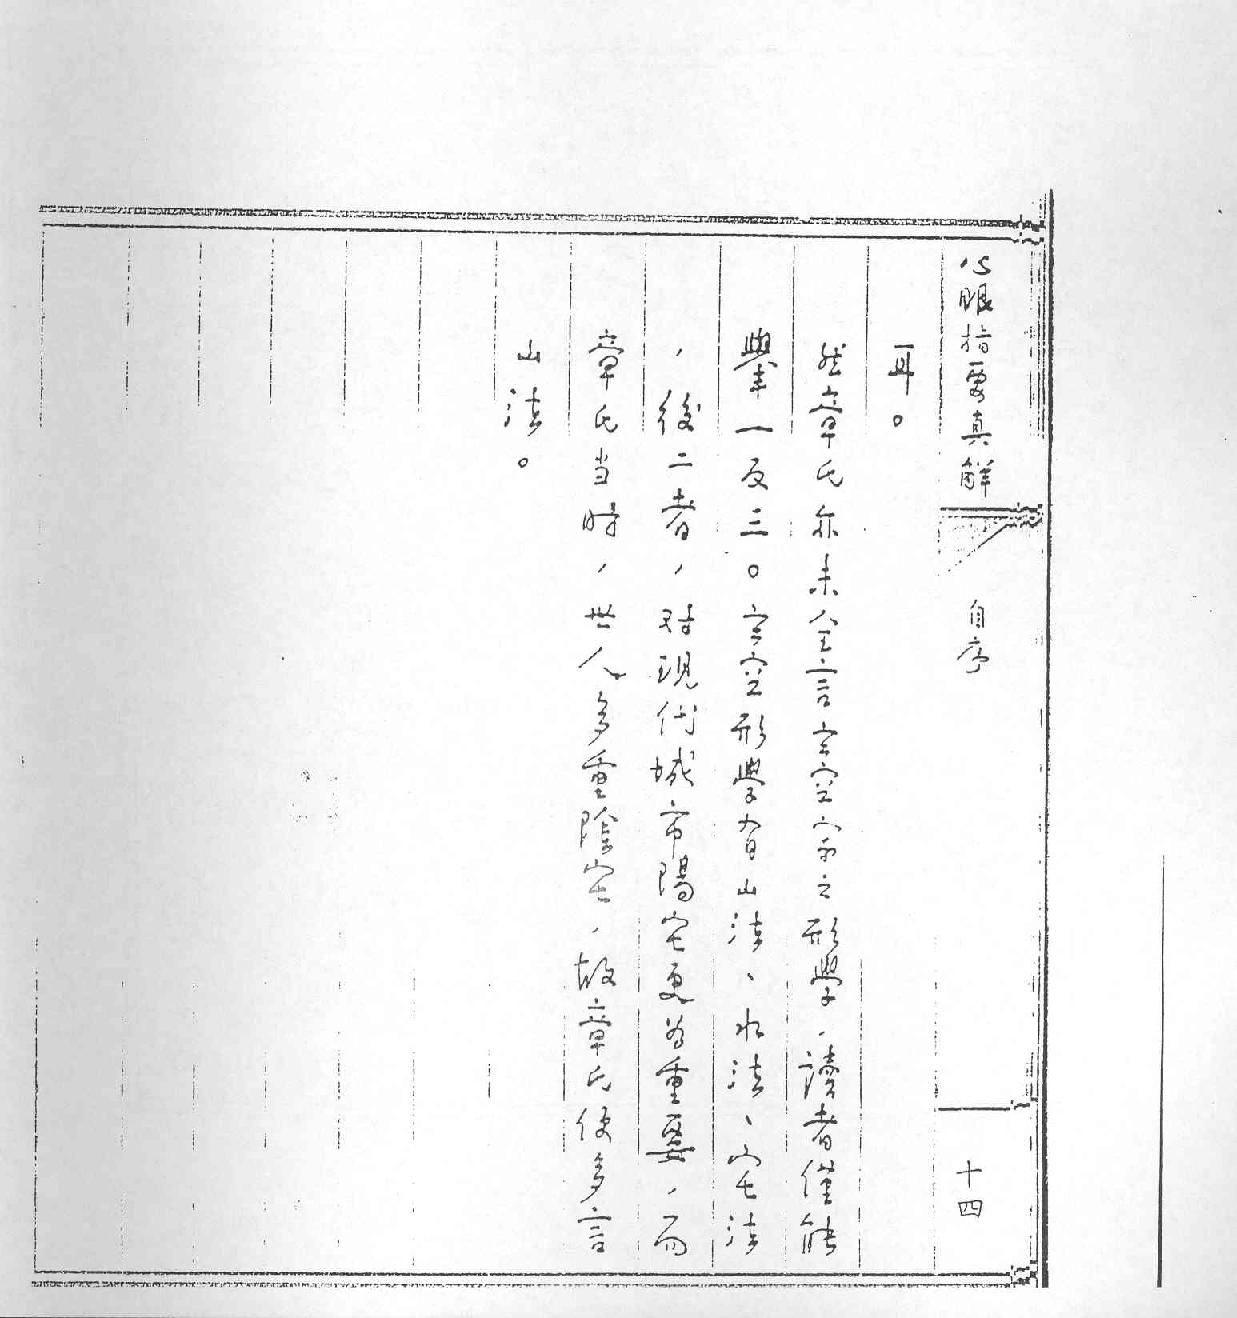 心眼指要真解
自序
十四
耳。
然章氏亦未全言玄空家之形學，讀者僅能
舉一反三。玄空形學有山法、水法、宅法
，後二者，对現代城市陽宅更为重要，而
章氏当時，世人多重陰宅，故章氏便多言
山法。